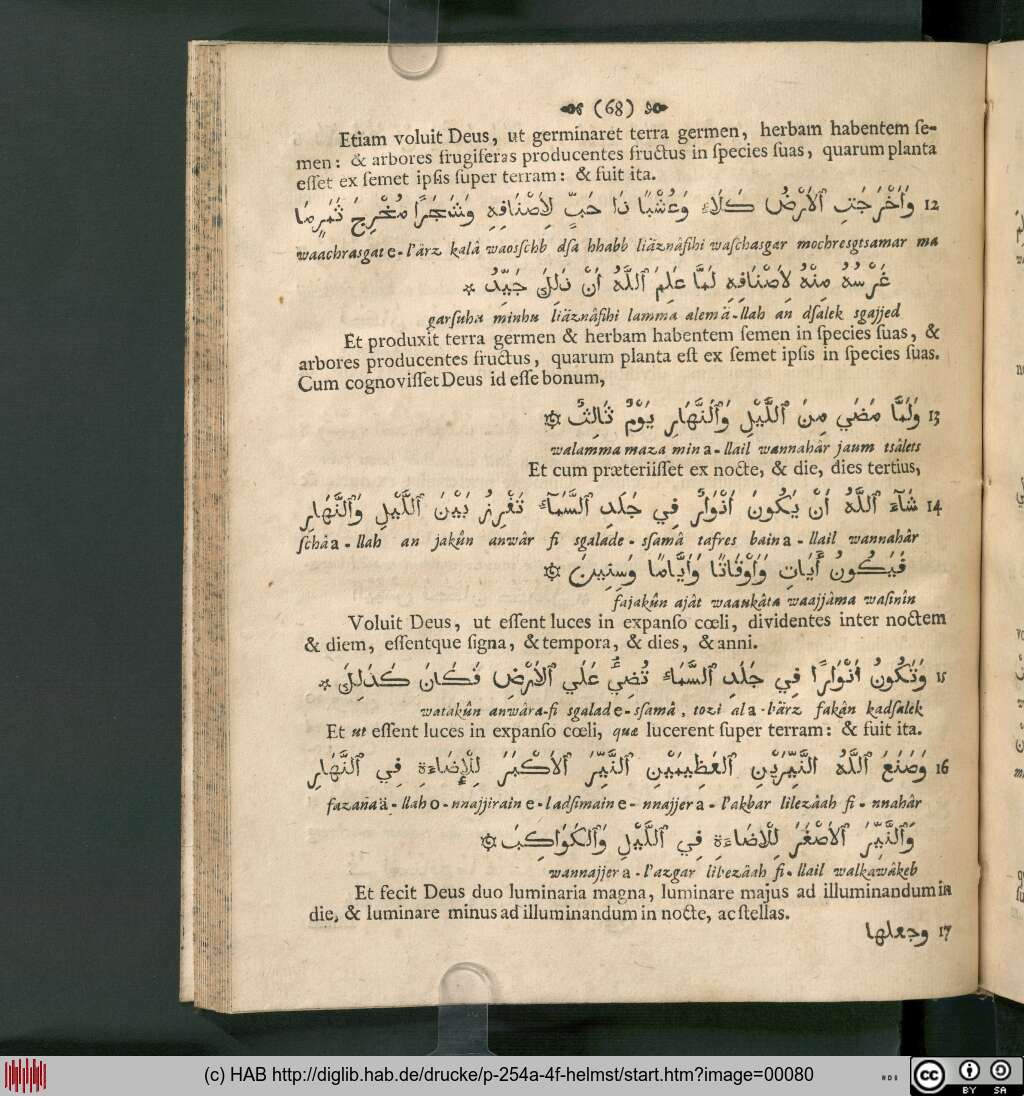 (68)
Etiam voluit Deus, ut germinaret terra germen, herbam habentem ſe-
men: & arbores frugiferas producentes fructus in ſpecies ſuas, quarum planta
eſſet ex ſemet ipſis ſuper terram: & fuit ita.
12 وَأَخْرَجَتِ ٱلأَرْضُ كَلَاءً وَعُشْبًا ذَا حَبٍّ لِأَصْنَافِهِ وَشَجَرًا مُخْرِجَ ثَمَرٍ مَا
waachrasgat e-l'ärz kalâ waosſchb dſa hhabb liäznâfihi waſchasgar mochresgtsamar ma
غَرْسُهُ مِنْهُ لِأَصْنَافِهِ لَمَّا عَلِمَ ٱللَّهُ أَنْ ذَلِكَ جَيِّدُ *
garſuhu minhu liäznâfihi lamma alemä-llah an dſalek sgajjed
Et produxit terra germen & herbam habentem ſemen in ſpecies ſuas, &
arbores producentes fructus, quarum planta eſt ex ſemet ipſis in ſpecies ſuas.
Cum cognoviſſet Deus id eſſe bonum,
13 وَلَمَّا مَضَي مِنَ ٱللَّيْلِ وَٱلنَّهَارِ يَوْمُ ثَالِثُ
walamma maza min a-llail wannahâr jaum tsâlets
Et cum præteriiſſet ex nocte, & die, dies tertius,
14 شَآءَ ٱللَّهُ أَنْ يَكُونَ أَنْوَارُ فِي جَلَدِ ٱلسَّمَآءِ تَفْرِزُ بَيْنَ ٱللَّيْلِ وَٱلنَّهَارِ
ſchâa-llah an jakûn anwâr fi sgalade-ſſamâ tafres bain a-llail wannahâr
فَيَكُونُ أَيَاتٍ وَأَوْقَاتًا وَأَيَّامًا وَسِنِينَ
fajakûn ajât waaukâta waajjâma waſinîn
Voluit Deus, ut eſſent luces in expanſo cœli, dividentes inter noctem
& diem, eſſentque ſigna, & tempora, & dies, & anni.
15 وَتَكُونُ أَنْوَارًا فِي جَلَدِ ٱلسَّمَاءِ تُضِيُ عَلَي ٱلأَرْضِ فَكَانَ كَذَلِكَ *
watakûn anwâra-fi sgalad e-ſſamâ, tozi al a-l'ärz fakân kadſalek
Et ut eſſent luces in expanſo cœli, quæ lucerent ſuper terram: & fuit ita.
16 وَصَنَعَ ٱللَّهُ ٱلنَّيِّرَيْنِ ٱلعَظِيمَيْنِ ٱلنَّيِّرَ ٱلأَكْبَرَ لِلْإِضَاءَةِ فِي ٱلنَّهَارِ
fazanaä-llah o-nnajjirain e-ladſimain e-nnajjer a-l'akbar lilezâah fi-nnahâr
وَٱلنَّيِّرَ ٱلأَصْغَرَ لِلْاضَاءَةِ فِي ٱللَّيْلِ وَٱلكَوَاكِبَ
wannajjer a-l'azgar lilezâah fi-llail walkawâkeb
Et fecit Deus duo luminaria magna, luminare majus ad illuminandum in
die, & luminare minus ad illuminandum in nocte, ac ſtellas.
17 وجعلها
(c) HAB http://diglib.hab.de/drucke/p-254a-4f-helmst/start.htm?image=00080
cc BY SA